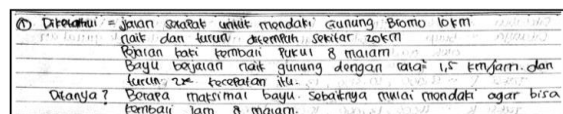 ① Diketahui = jalan setapak untuk mendaki Gunung Bromo 10km
naik dan turun ditempuh sekitar 20km
Pejalan kaki kembali Pukul 8 malam
Bayu berjalan naik gunung dengan rata² 1,5 km/jam. dan
turun 2x kecepatan itu.
Ditanya? Berapa maksimal bayu sebaiknya mulai mendaki agar bisa
kembali jam 8 malam.